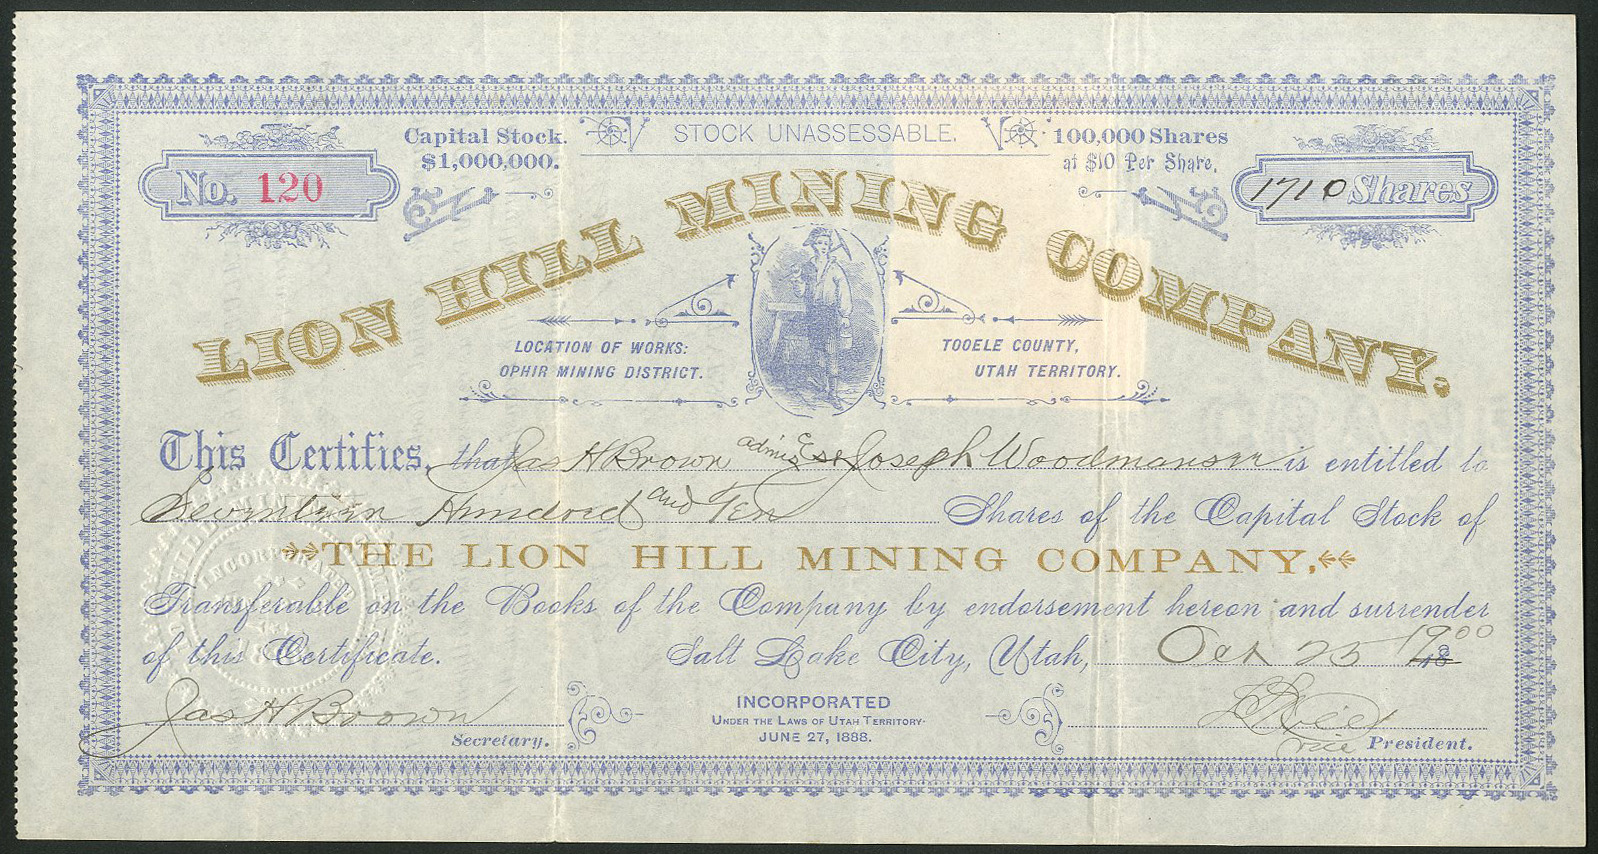 Capital Stock.
$1,000,000.
STOCK UNASSESSABLE.
100,000 Shares
at $10 Per Share.
No. 120
1710 Shares
LION HILL MINING COMPANY.
LOCATION OF WORKS:
OPHIR MINING DISTRICT.
TOOELE COUNTY,
UTAH TERRITORY.
This Certifies, that Jas H Brown admr Est Joseph Woodmansee is entitled to
Seventeen Hundred and Ten Shares of the Capital Stock of
THE LION HILL MINING COMPANY,
Transferable on the Books of the Company by endorsement hereon and surrender
of this Certificate. Salt Lake City, Utah, Oct 25 1900
INCORPORATED
UNDER THE LAWS OF UTAH TERRITORY
JUNE 27, 1888.
Jas H Brown
Secretary.
vice President.
INCORPORATED